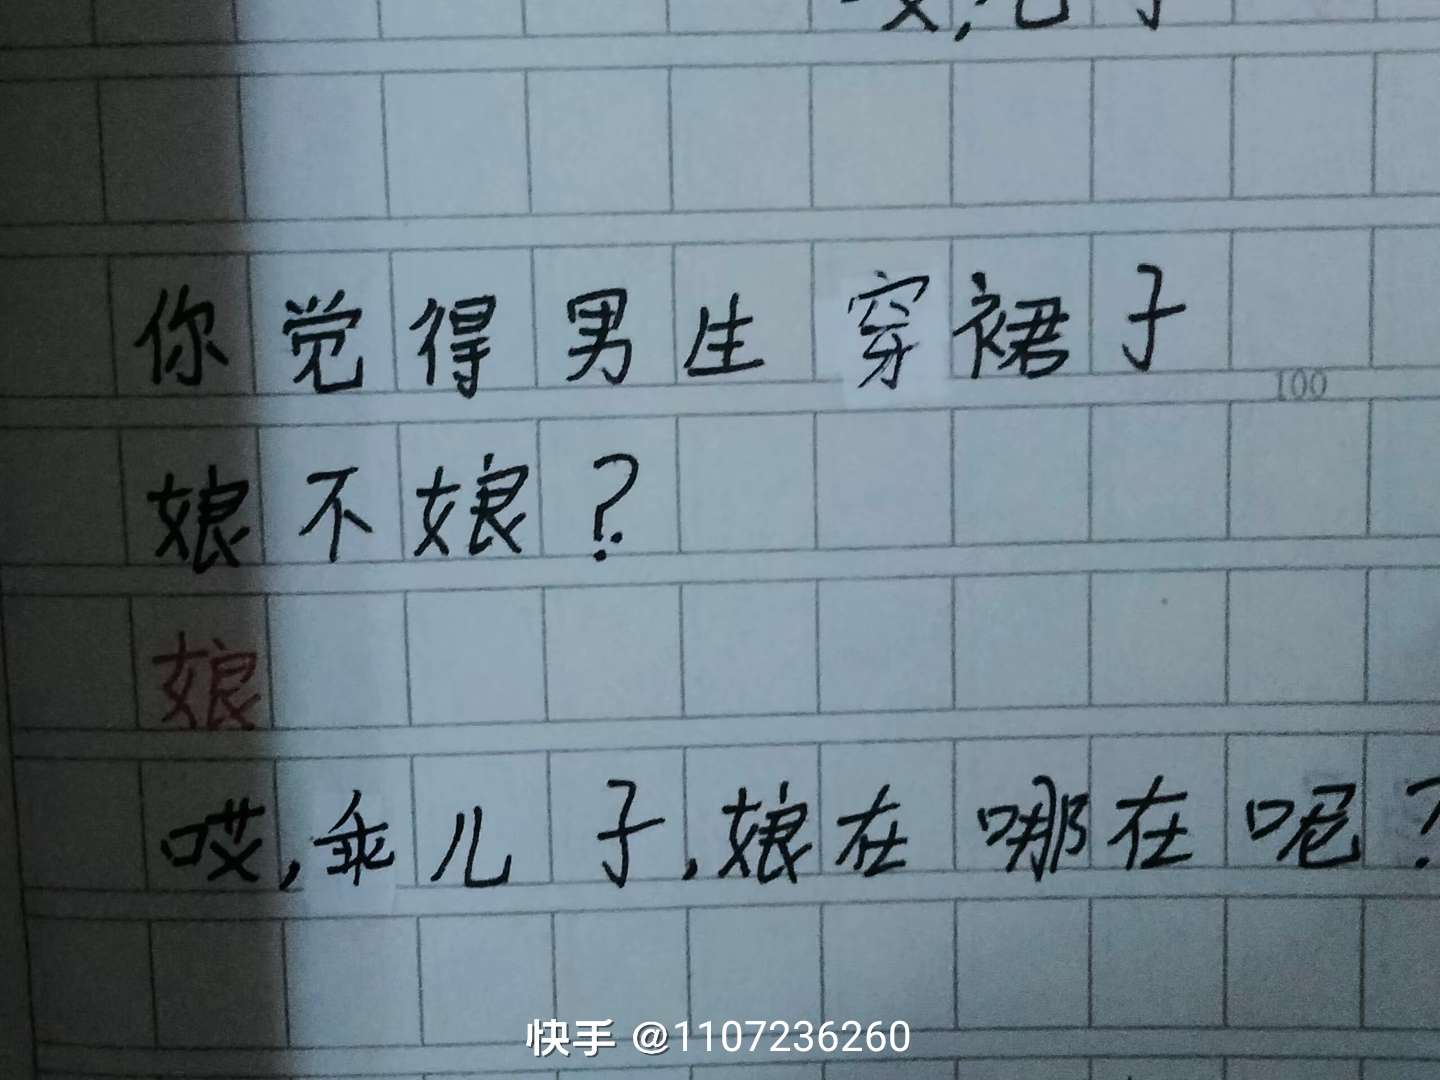 你觉得男生穿裙子
100
娘不娘？
娘
哎,乖儿子,娘在哪在呢？
快手 @1107236260